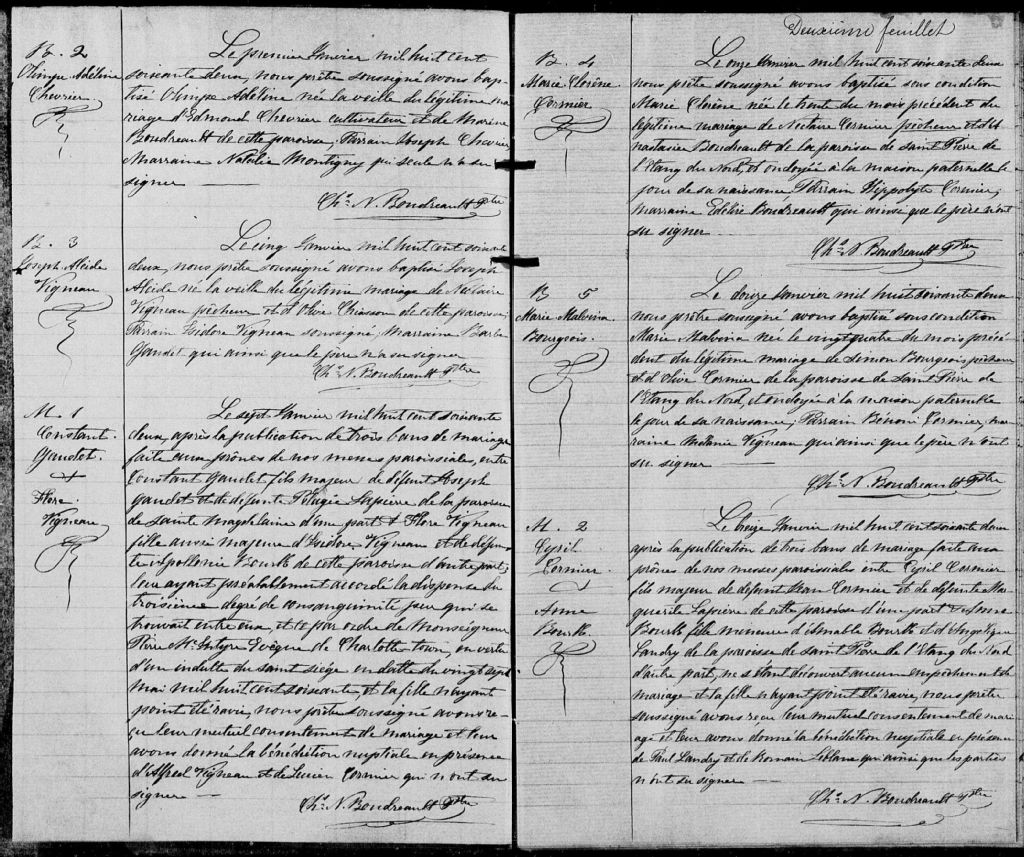 B. 2
Olimpe Adéline
Chevrier
Le premier Janvier mil huit cent
soixante deux, nous prêtre soussigné avons bap-
tisé Olimpe Adéline née la veille du légitime ma-
riage d'Edmond Chevrier cultivateur et de Marine
Boudreault de cette paroisse, Parrain Joseph Chevrier
Marraine Natalie Montigny qui seule n'a su
signer
Chs. N. Boudreault Ptre
B. 3
Joseph Alcide
Vigneau
Le cinq Janvier mil huit cent soixante
deux, nous prêtre soussigné avons baptisé Joseph
Alcide né la veille du légitime mariage de Nectaire
Vigneau pêcheur et d'Olive Chiasson de cette paroisse
Parrain Isidore Vigneau soussigné, Marraine Barbe
Gaudet qui ainsi que le père n'a su signer
Chs. N. Boudreault Ptre
M. 1
Constant
Gaudet
&
Flore
Vigneau
Le sept Janvier mil huit cent soixante
deux, après la publication de trois bans de mariage
faite aux prônes de nos messes paroissiales, entre
Constant Gaudet fils majeur de défunt Joseph
Gaudet et de défunte Pélagie Lapierre de la paroisse
de Sainte Magdelaine d'une part & Flore Vigneau
fille aussi majeure d'Isidore Vigneau et de défun-
te Apollonie Bourk de cette paroisse d'autre part;
leur ayant préalablement accordé la dispense du
troisième degré de consanguinité pur qui se
trouvait entre eux, et ce par ordre de Monseigneur
Pierre McIntyre Evêque de Charlotte town, en vertu
d'un indulte du saint siége en datte du vingt sept
mai mil huit cent soixante, et la fille n'ayant
point été ravie, nous prêtre soussigné avons re-
çu leur mutuel consentement de mariage et leur
avons donné la bénédiction nuptiale en présence
d'Alfred Vigneau et de Lucien Cormier qui n'ont su
signer
Chs. N. Boudreault Ptre
Deuxième feuillet
B. 4
Marie Clorène
Cormier
Le onze Janvier mil huit cent soixante deux
nous prêtre soussigné avons baptisé sous condition
Marie Clorène née le trente du mois précédent du
légitime mariage de Nectaire Cormier pêcheur et d'A
nastasie Boudreault de la paroisse de saint Pierre de
l'Etang du Nord, et ondoyée à la maison paternelle le
jour de sa naissance Parrain Hippolyte Cormier,
marraine Boudreault qui ainsi que le père n'ont
su signer
Chs. N. Boudreault Ptre
B. 5
Marie Malvina
Bourgeois
Le douze Janvier mil huit soixante deux
nous prêtre soussigné avons baptisé sous condition
Marie Malvina née le vingt quatre du mois précé
dent du légitime mariage de Simon Bourgeois pêcheur
et d'Olive Cormier de la paroisse de Saint Pierre de
l'Etang du Nord, et ondoyée à la maison paternelle
le jour de sa naissance; Parrain Bénoni Cormier, mar
raine Mélanie Vigneau qui ainsi que le père n'ont
su signer
Chs. N. Boudreault Ptre
M. 2
Cyril
Cormier
&
Anne
Bourk
Le treize Janvier mil huit cent soixante deux
après la publication de trois bans de mariage faite aux
prônes de nos messes paroissiales entre Cyril Cormier
fils majeur de défunt Jean Cormier et de défunte Mar
guerite Lapierre de cette paroisse d'une part & Anne
Bourk fille mineure d'Amable Bourk et d'Angélique
Landry de la paroisse de saint Pierre de l'Etang du Nord
d'autre part, ne s'étant découvert aucun empêchement de
mariage et la fille n'ayant point été ravie, nous prêtre
soussigné avons reçu leur mutuel consentement de mari
age et leur avons donné la bénédiction nuptiale en présence
de Paul Landry et de Romain Leblanc qui ainsi que les parties
n'ont su signer
Chs. N. Boudreault Ptre